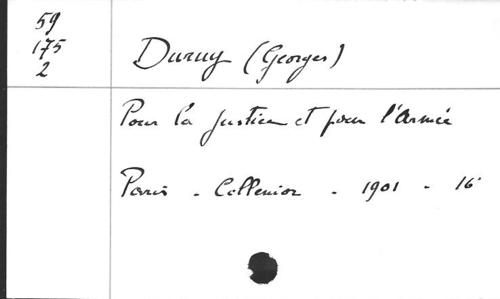 59
175
2
Duruy (Georges)
Pour la Justice et pour l'Armée
Paris - Ollendorf - 1901 - 16°